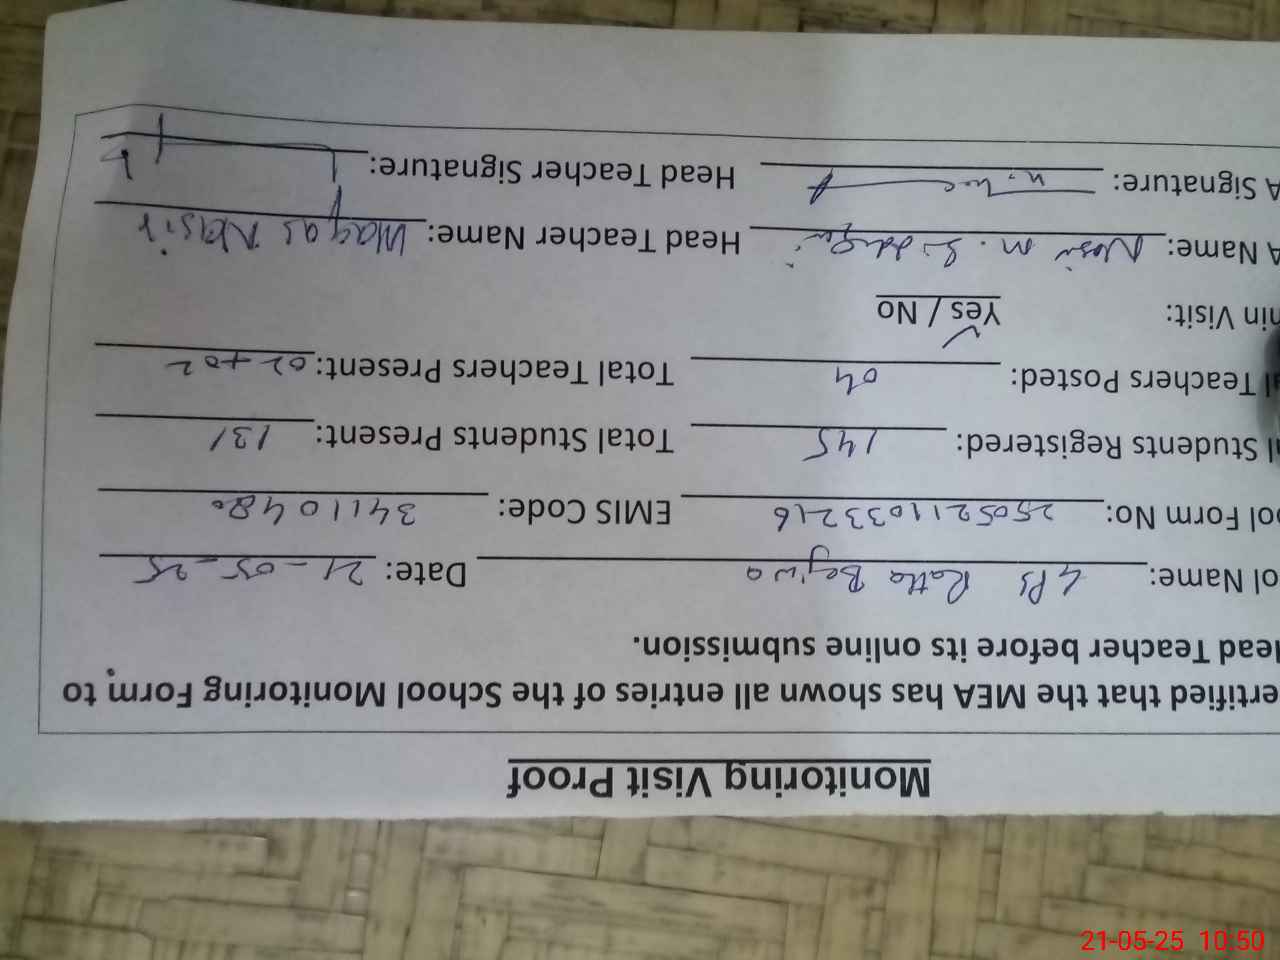 Monitoring Visit Proof
ertified that the MEA has shown all entries of the School Monitoring Form to
lead Teacher before its online submission.
ol Name: GPS Ratta Bajwa Date: 21-05-25
ool Form No: 2505211033216 EMIS Code: 34110480
l Students Registered: 145 Total Students Present: 131
al Teachers Posted: 04 Total Teachers Present: 02+02
nin Visit: Yes / No
A Name: M. Siddiqui Head Teacher Name: Nasir
A Signature: Head Teacher Signature:
21-05-25 10:50